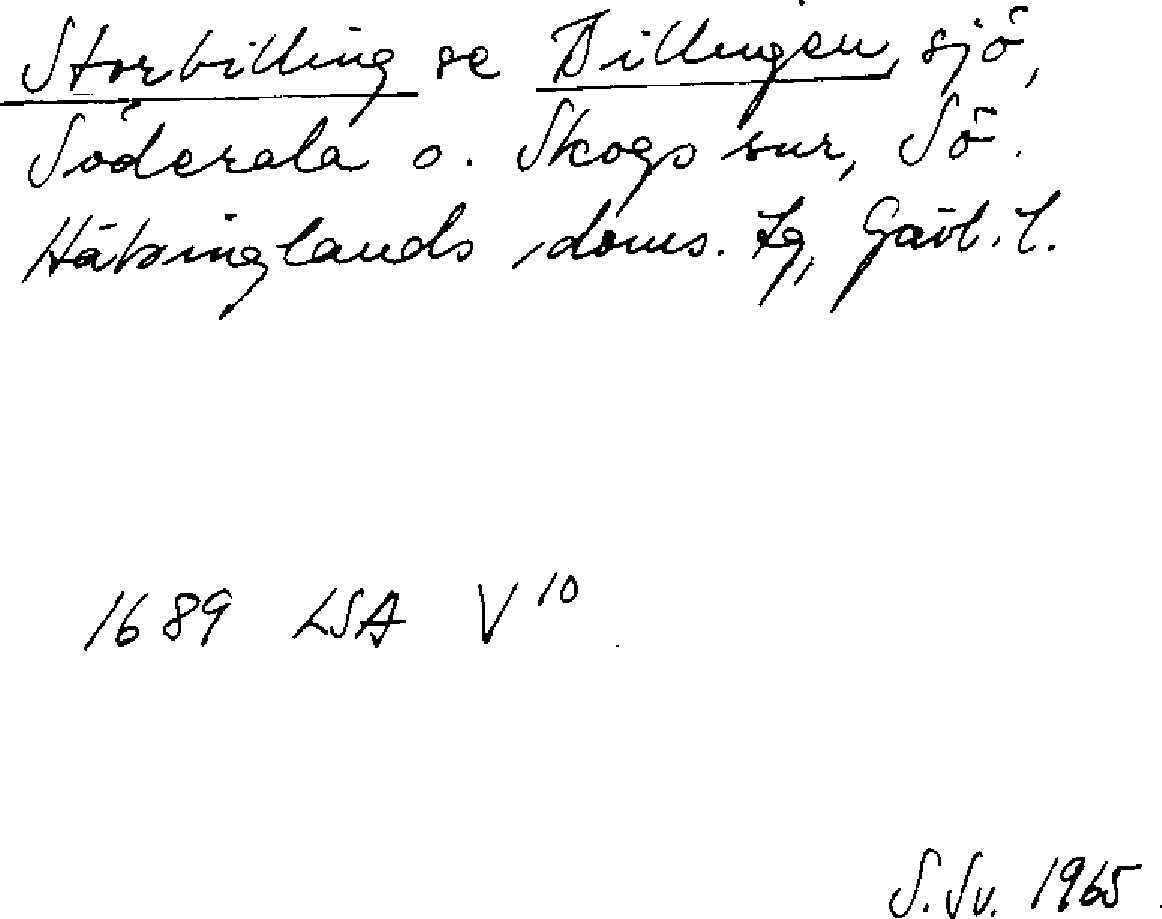 Storbilling se Billingen, sjö,
Söderala o. Skogs snr, Sö.
Hälsinglands doms. tg, Gävl. l.
1689 LSA V 10
S. Sv. 1965